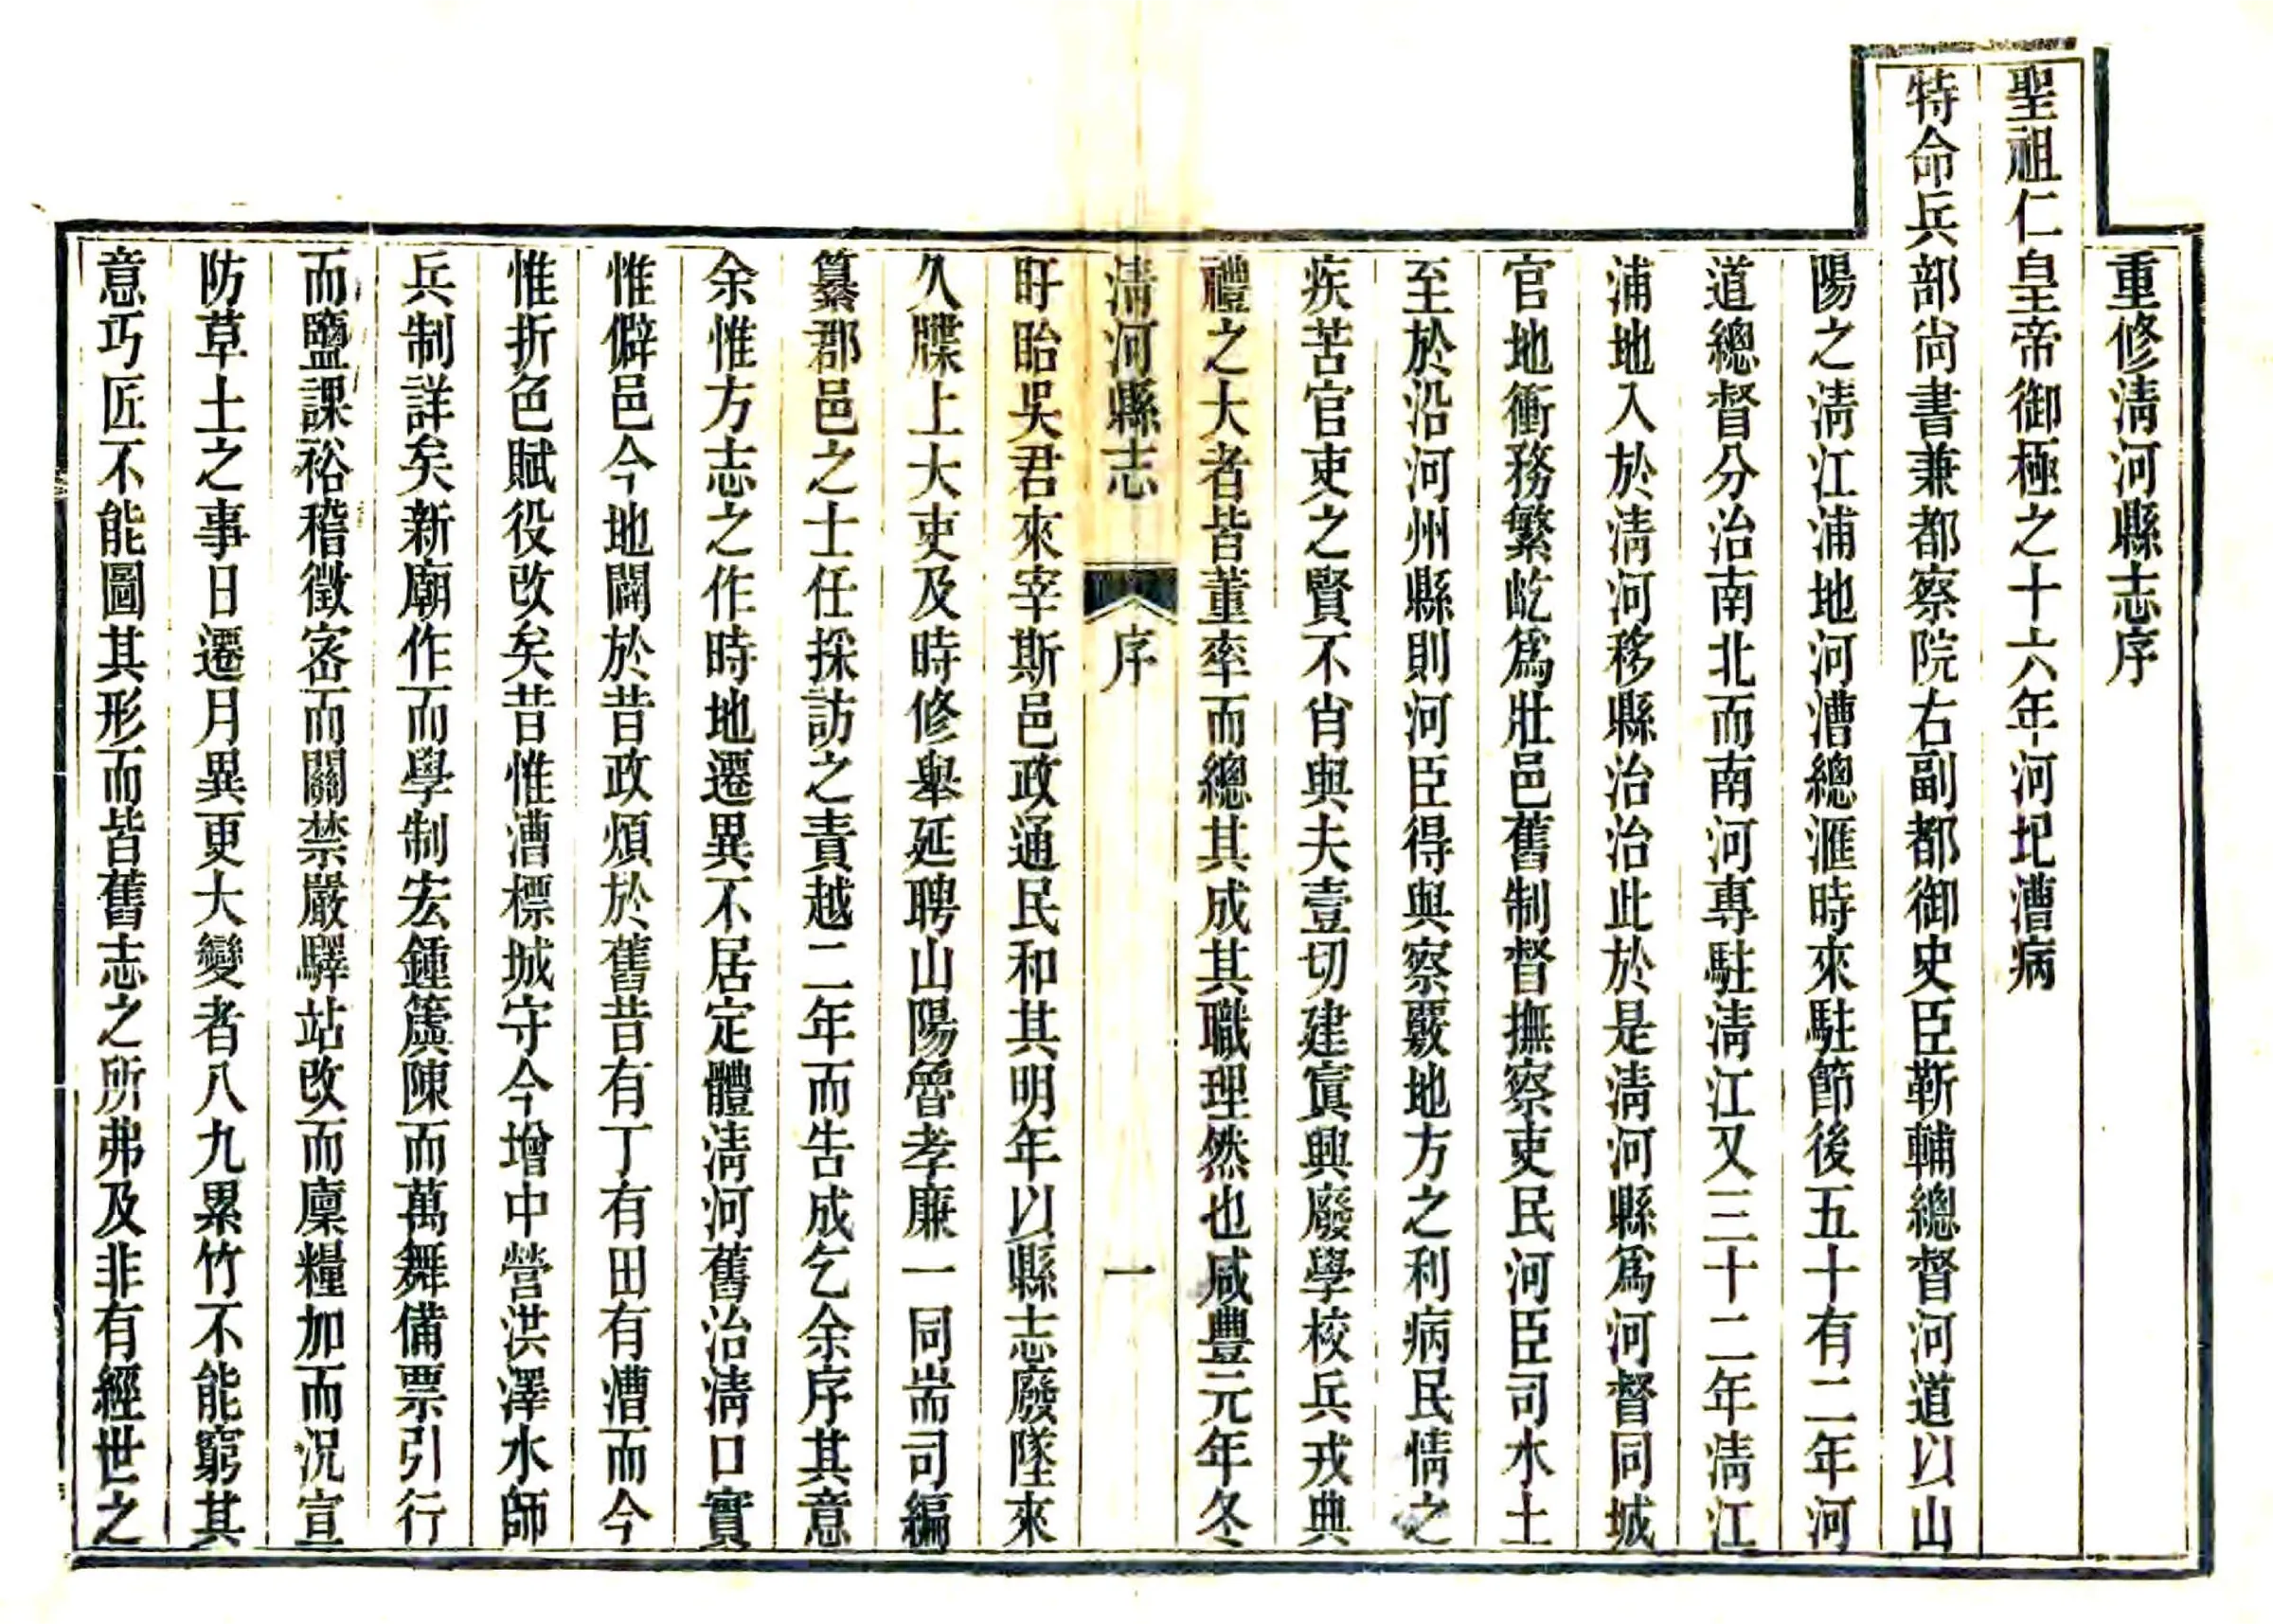 重修清河縣志序
聖祖仁皇帝御極之十六年河圮漕病
特命兵部尚書兼都察院右副都御史臣靳輔總督河道以山
陽之清江浦地河漕總滙時來駐節後五十有二年河
道總督分治南北而南河專駐清江又三十二年清江
浦地入於清河移縣治治此於是清河縣爲河督同城
官地衝務繁屹爲壯邑舊制督撫察吏民河臣司水土
至於沿河州縣則河臣得與察覈地方之利病民情之
疾苦官吏之賢不肖與夫壹切建寘興廢學校兵戎典
禮之大者皆董率而總其成其職理然也咸豐元年冬
清河縣志 序 一
盱眙吳君來宰斯邑政通民和其明年以縣志廢墜來
久牒上大吏及時修舉延聘山陽魯孝廉一同耑司編
纂郡邑之士任採訪之責越二年而告成乞余序其意
余惟方志之作時地遷異不居定體清河舊治清口實
惟僻邑今地闢於昔政煩於舊昔有丁有田有漕而今
惟折色賦役改矣昔惟漕標城守今增中營洪澤水師
兵制詳矣新廟作而學制宏鍾簴陳而萬舞備票引行
而鹽課裕稽徵密而關禁嚴驛站改而廩糧加而況宣
防草土之事日遷月異更大變者八九累竹不能窮其
意巧匠不能圖其形而皆舊志之所弗及非有經世之